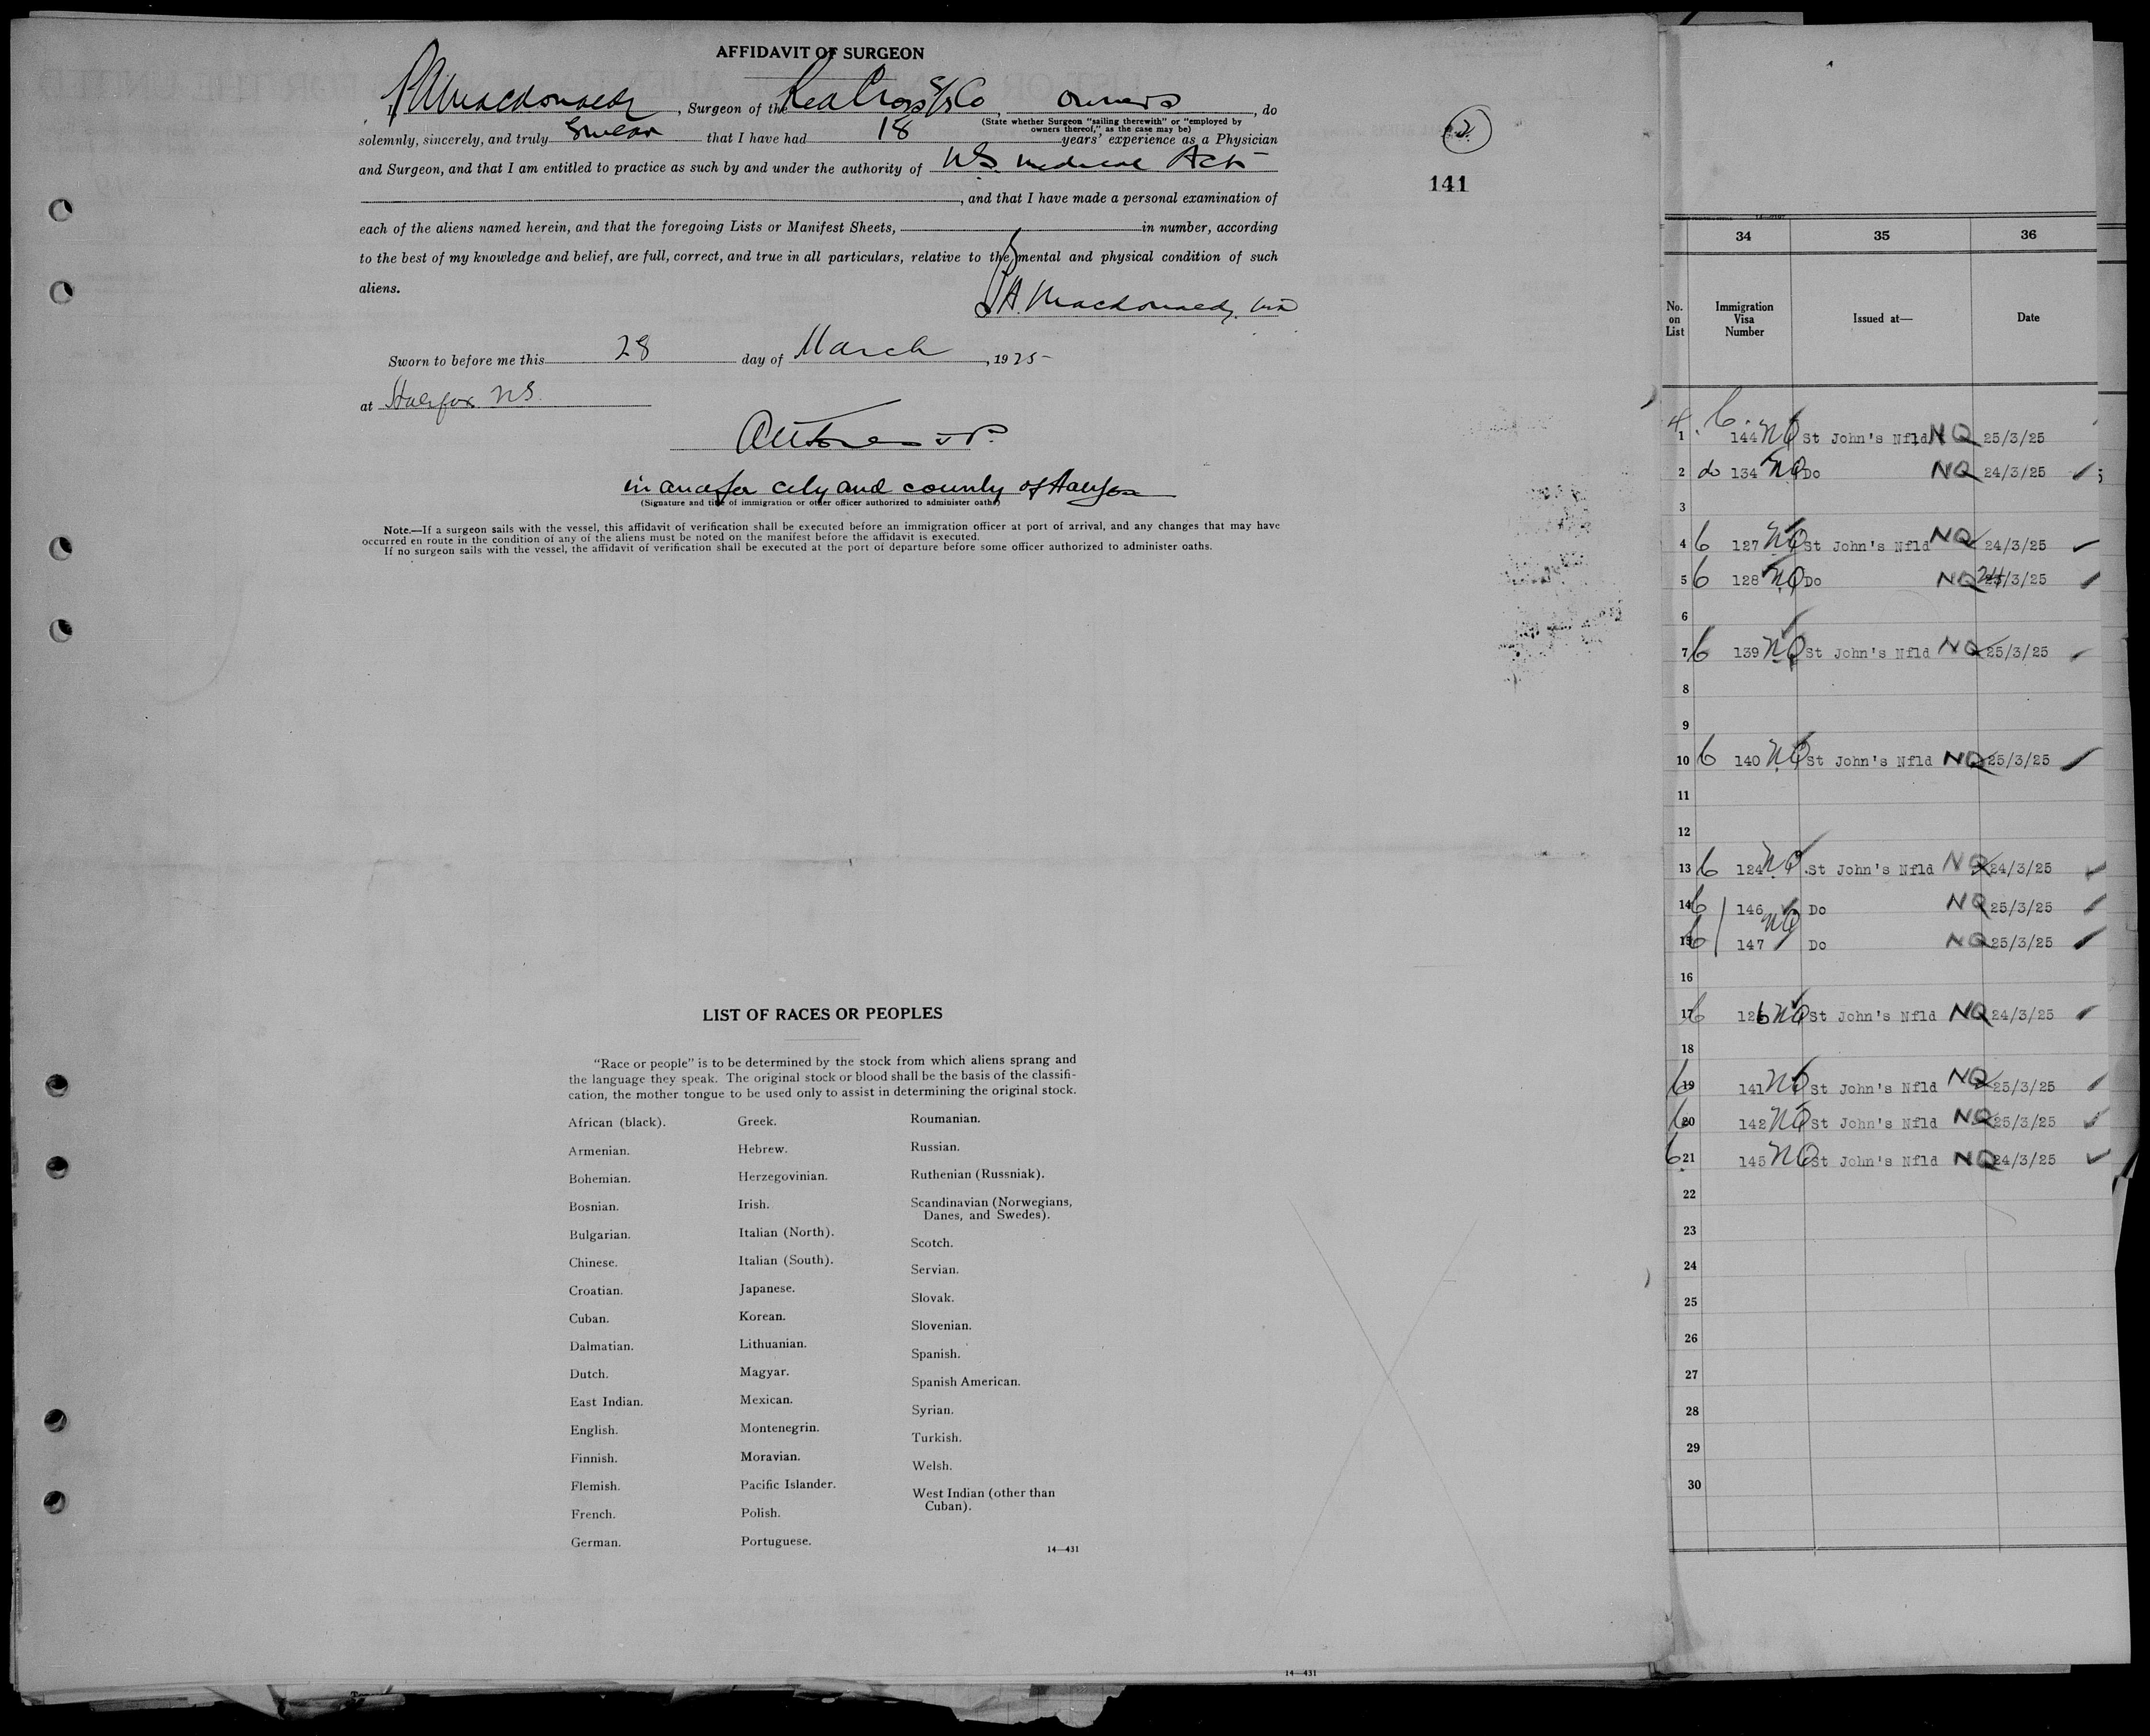 AFFIDAVIT OF SURGEON
I, Macdonald, Surgeon of the Red Cross S/S Co, owners, do
(State whether Surgeon "sailing therewith" or "employed by
owners thereof," as the case may be)
solemnly, sincerely, and truly swear that I have had 18 years' experience as a Physician
and Surgeon, and that I am entitled to practice as such by and under the authority of N.S. Medical Act
, and that I have made a personal examination of
each of the aliens named herein, and that the foregoing Lists or Manifest Sheets, in number, according
to the best of my knowledge and belief, are full, correct, and true in all particulars, relative to the mental and physical condition of such
aliens.
Macdonald, MD
Sworn to before me this 28 day of March, 1925
at Halifax NS.
J P.
in and for city and county of Halifax
(Signature and title of immigration or other officer authorized to administer oaths)
Note.—If a surgeon sails with the vessel, this affidavit of verification shall be executed before an immigration officer at port of arrival, and any changes that may have
occurred en route in the condition of any of the aliens must be noted on the manifest before the affidavit is executed.
If no surgeon sails with the vessel, the affidavit of verification shall be executed at the port of departure before some officer authorized to administer oaths.
2
141
LIST OF RACES OR PEOPLES
"Race or people" is to be determined by the stock from which aliens sprang and
the language they speak. The original stock or blood shall be the basis of the classifi-
cation, the mother tongue to be used only to assist in determining the original stock.
African (black).
Armenian.
Bohemian.
Bosnian.
Bulgarian.
Chinese.
Croatian.
Cuban.
Dalmatian.
Dutch.
East Indian.
English.
Finnish.
Flemish.
French.
German.
Greek.
Hebrew.
Herzegovinian.
Irish.
Italian (North).
Italian (South).
Japanese.
Korean.
Lithuanian.
Magyar.
Mexican.
Montenegrin.
Moravian.
Pacific Islander.
Polish.
Portuguese.
Roumanian.
Russian.
Ruthenian (Russniak).
Scandinavian (Norwegians,
Danes, and Swedes).
Scotch.
Servian.
Slovak.
Slovenian.
Spanish.
Spanish American.
Syrian.
Turkish.
Welsh.
West Indian (other than
Cuban).
14—431
14—431
34 35 36
No. on List Immigration Visa Number Issued at— Date
1 144 NQ St John's Nfld NQ 25/3/25
2 do 134 NQ Do NQ 24/3/25
3
4 6 127 NQ St John's Nfld NQ 24/3/25
5 6 128 NQ Do NQ 24/3/25
6
7 6 139 NQ St John's Nfld NQ 25/3/25
8
9
10 6 140 NQ St John's Nfld NQ 25/3/25
11
12
13 6 124 NQ St John's Nfld NQ 24/3/25
14 6 146 NQ Do NQ 25/3/25
15 6 147 Do NQ 25/3/25
16
17 6 126 NQ St John's Nfld NQ 24/3/25
18
6 19 141 NQ St John's Nfld NQ 25/3/25
6 20 142 NQ St John's Nfld NQ 25/3/25
6 21 145 NQ St John's Nfld NQ 24/3/25
22
23
24
25
26
27
28
29
30